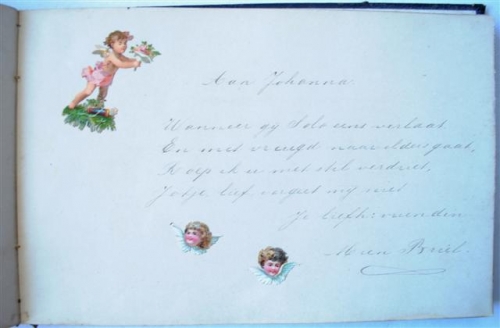 Aan Johanna
Wanneer gij Solo eens verlaat
En met vreugd naar elders gaat,
Roep ik u met stil verdriet,
Jotje lief, vergeet mij niet
Je liefh. vriendin
Mien Briët.